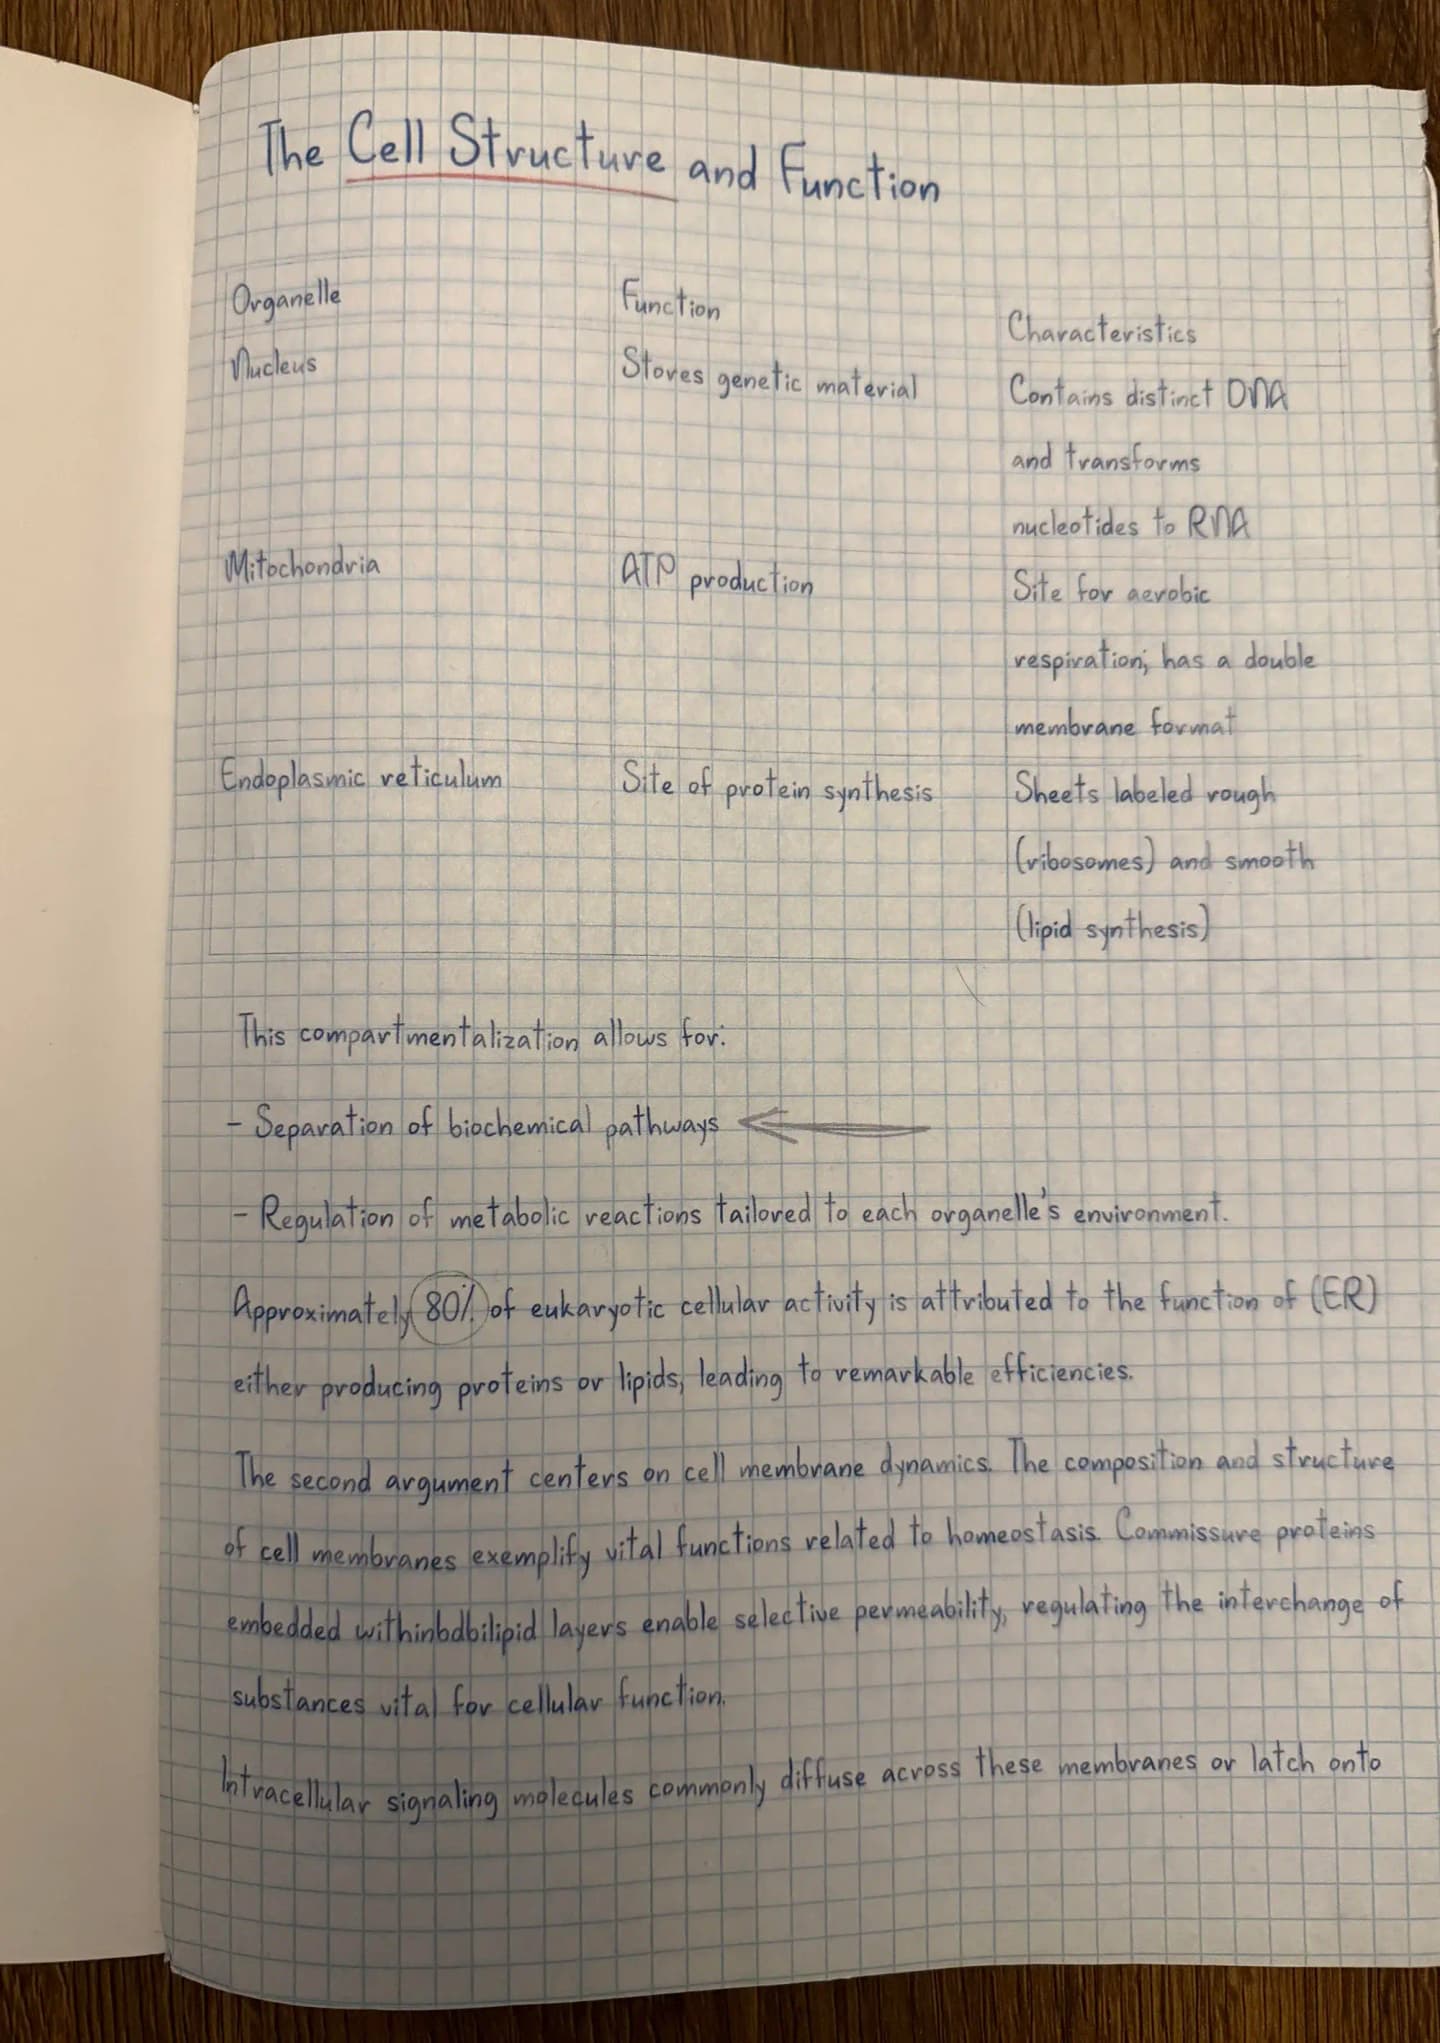 The Cell Structure and Function
Organelle Function Characteristics
Nucleus Stores genetic material Contains distinct DNA
and transforms
nucleotides to RNA
Mitochondria ATP production Site for aerobic
respiration; has a double
membrane format
Endoplasmic reticulum Site of protein synthesis Sheets labeled rough
(ribosomes) and smooth
(lipid synthesis)
This compartmentalization allows for:
- Separation of biochemical pathways
- Regulation of metabolic reactions tailored to each organelle's environment.
Approximately 80% of eukaryotic cellular activity is attributed to the function of (ER)
either producing proteins or lipids, leading to remarkable efficiencies.
The second argument centers on cell membrane dynamics. The composition and structure
of cell membranes exemplify vital functions related to homeostasis. Commissure proteins
embedded withinbdbilipid layers enable selective permeability, regulating the interchange of
substances vital for cellular function.
Intracellular signaling molecules commonly diffuse across these membranes or latch onto